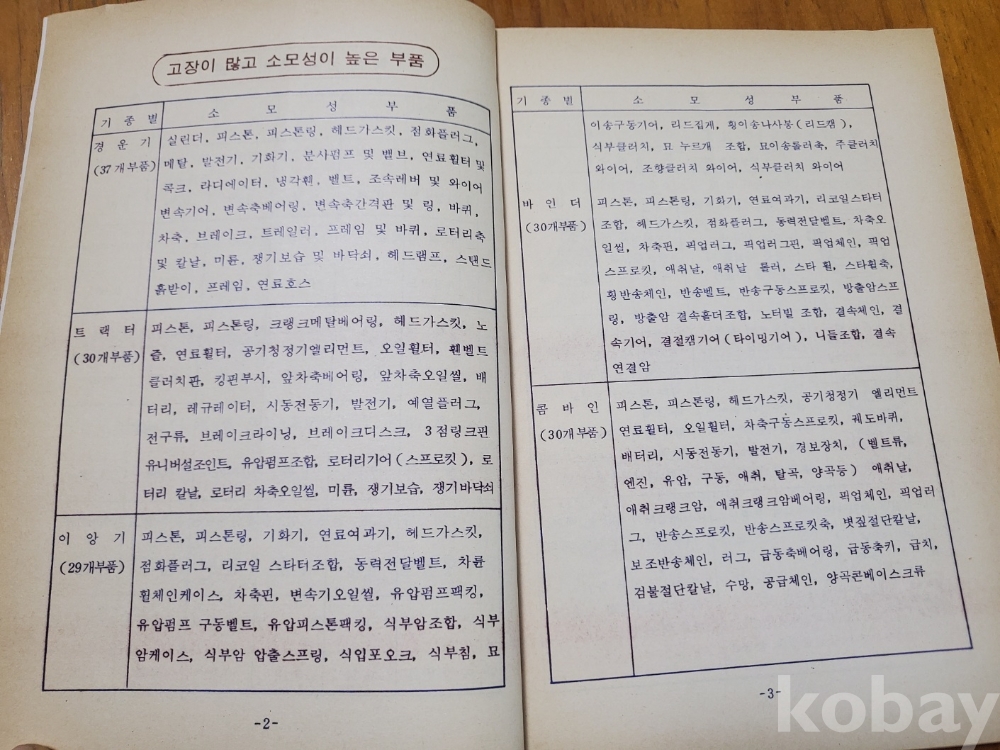 고장이 많고 소모성이 높은 부품
기종별 소모성부품
경운기 실린더, 피스톤, 피스톤링, 헤드가스킷, 점화플러그,
(37개부품) 메탈, 발전기, 기화기, 분사펌프 및 벨브, 연료휠터 및
콕크, 라디에이터, 냉각휀, 벨트, 조속레버 및 와이어
변속기어, 변속축베어링, 변속축간격판 및 링, 바퀴,
차축, 브레이크, 트레일러, 프레임 및 바퀴, 로터리축
및 칼날, 미륜, 쟁기보습 및 바닥쇠, 헤드램프, 스탠드
흙받이, 프레임, 연료호스
트랙터 피스톤, 피스톤링, 크랭크메탈베어링, 헤드가스킷, 노
(30개부품) 즐, 연료휠터, 공기청정기엘리먼트, 오일휠터, 휀벨트
클러치판, 킹핀부시, 앞차축베어링, 앞차축오일씰, 배
터리, 레규레이터, 시동전동기, 발전기, 예열플러그,
전구류, 브레이크라이닝, 브레이크디스크, 3점링크핀
유니버설조인트, 유압펌프조합, 로터리기어(스프로킷), 로
터리 칼날, 로터리 차축오일씰, 미륜, 쟁기보습, 쟁기바닥쇠
이앙기 피스톤, 피스톤링, 기화기, 연료여과기, 헤드가스킷,
(29개부품) 점화플러그, 리코일 스타터조합, 동력전달벨트, 차륜
휠체인케이스, 차축핀, 변속기오일씰, 유압펌프팩킹,
유압펌프 구동벨트, 유압피스톤팩킹, 식부암조합, 식부
암케이스, 식부암 압출스프링, 식입포오크, 식부침, 묘
-2-
기종별 소모성부품
이송구동기어, 리드집게, 횡이송나사봉(리드캠),
식부클러치, 묘 누르개 조합, 묘이송롤러축, 주클러치
와이어, 조향클러치 와이어, 식부클러치 와이어
바인더 피스톤, 피스톤링, 기화기, 연료여과기, 리코일스타터
(30개부품) 조합, 헤드가스킷, 점화플러그, 동력전달벨트, 차축오
일씰, 차축핀, 픽업러그, 픽업러그핀, 픽업체인, 픽업
스프로킷, 애취날, 애취날 롤러, 스타 휠, 스타휠축,
횡반송체인, 반송벨트, 반송구동스프로킷, 방출암스프
링, 방출암 결속홀더조합, 노터빌 조합, 결속체인, 결
속기어, 결절캠기어(타이밍기어), 니들조합, 결속
연결암
콤바인 피스톤, 피스톤링, 헤드가스킷, 공기청정기 엘리먼트
(30개부품) 연료휠터, 오일휠터, 차축구동스프로킷, 궤도바퀴,
배터리, 시동전동기, 발전기, 경보장치, (벨트류,
엔진, 유압, 구동, 애취, 탈곡, 양곡등) 애취날,
애취크랭크암, 애취크랭크암베어링, 픽업체인, 픽업러
그, 반송스프로킷, 반송스프로킷축, 볏짚절단칼날,
보조반송체인, 러그, 급동축베어링, 급동축키, 급치,
검불절단칼날, 수망, 공급체인, 양곡콘베이스크류
-3-
kobay